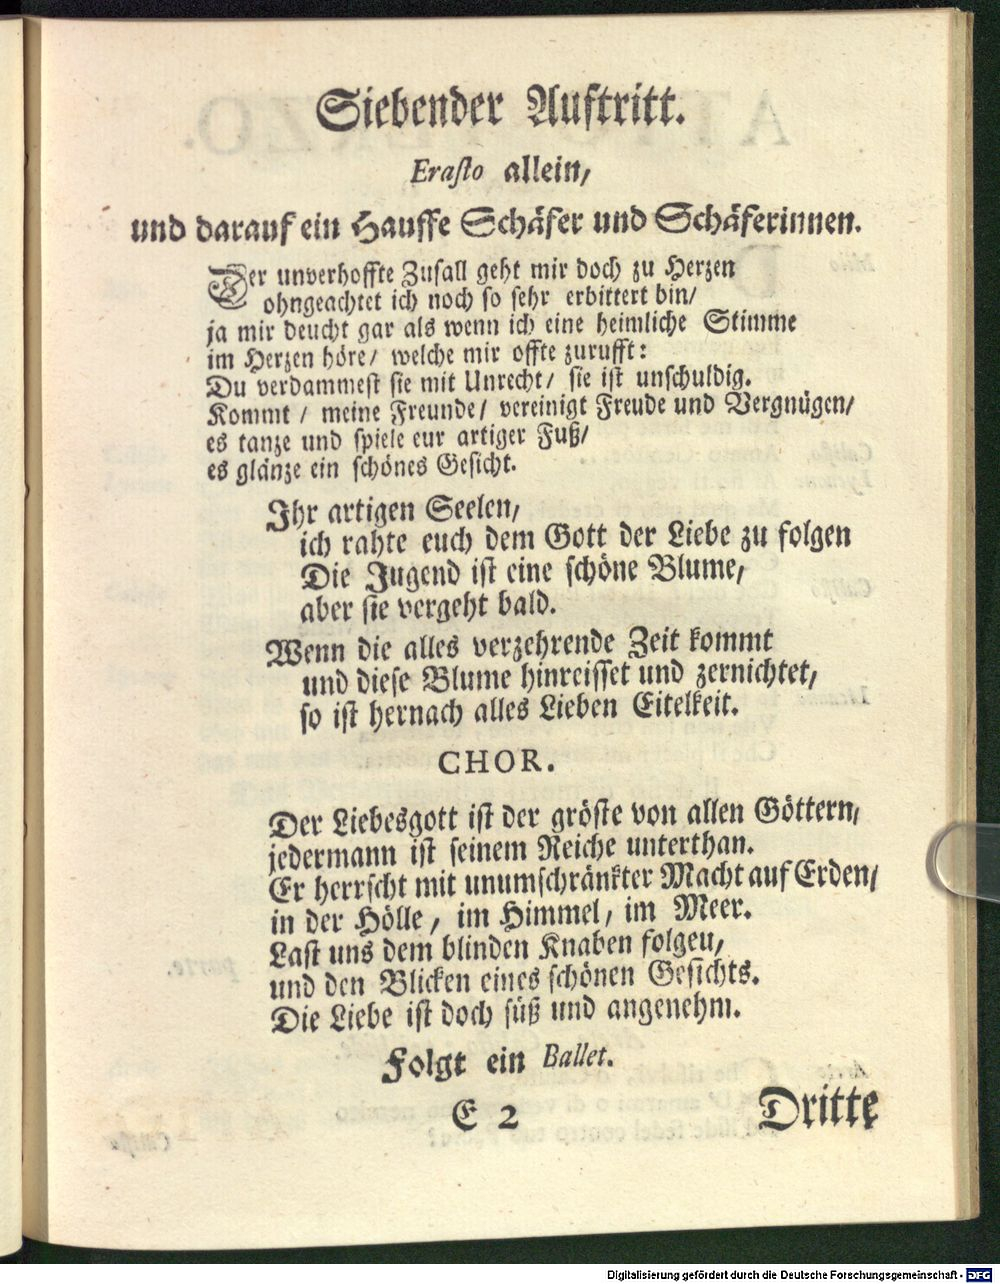 Siebender Auftritt.
Erasto allein,
und darauf ein Hauffe Schäfer und Schäferinnen.
Der unverhoffte Zufall geht mir doch zu Herzen
ohngeachtet ich noch so sehr erbittert bin/
ja mir deucht gar als wenn ich eine heimliche Stimme
im Herzen höre/ welche mir offte zurufft:
Du verdammest sie mit Unrecht/ sie ist unschuldig.
Kommt / meine Freunde/ vereinigt Freude und Vergnügen/
es tanze und spiele eur artiger Fuß/
es glänze ein schönes Gesicht.
Ihr artigen Seelen,
ich rahte euch dem Gott der Liebe zu folgen
Die Jugend ist eine schöne Blume,
aber sie vergeht bald.
Wenn die alles verzehrende Zeit kommt
und diese Blume hinreisset und zernichtet,
so ist hernach alles Lieben Eitelkeit.
CHOR.
Der Liebesgott ist der gröste von allen Göttern,
jedermann ist seinem Reiche unterthan.
Er herrscht mit unumschränkter Macht auf Erden/
in der Hölle, im Himmel, im Meer.
Last uns dem blinden Knaben folgen,
und den Blicken eines schönen Gesichts.
Die Liebe ist doch süß und angenehm.
Folgt ein Ballet.
E 2
Dritte
Digitalisierung gefördert durch die Deutsche Forschungsgemeinschaft - DFG